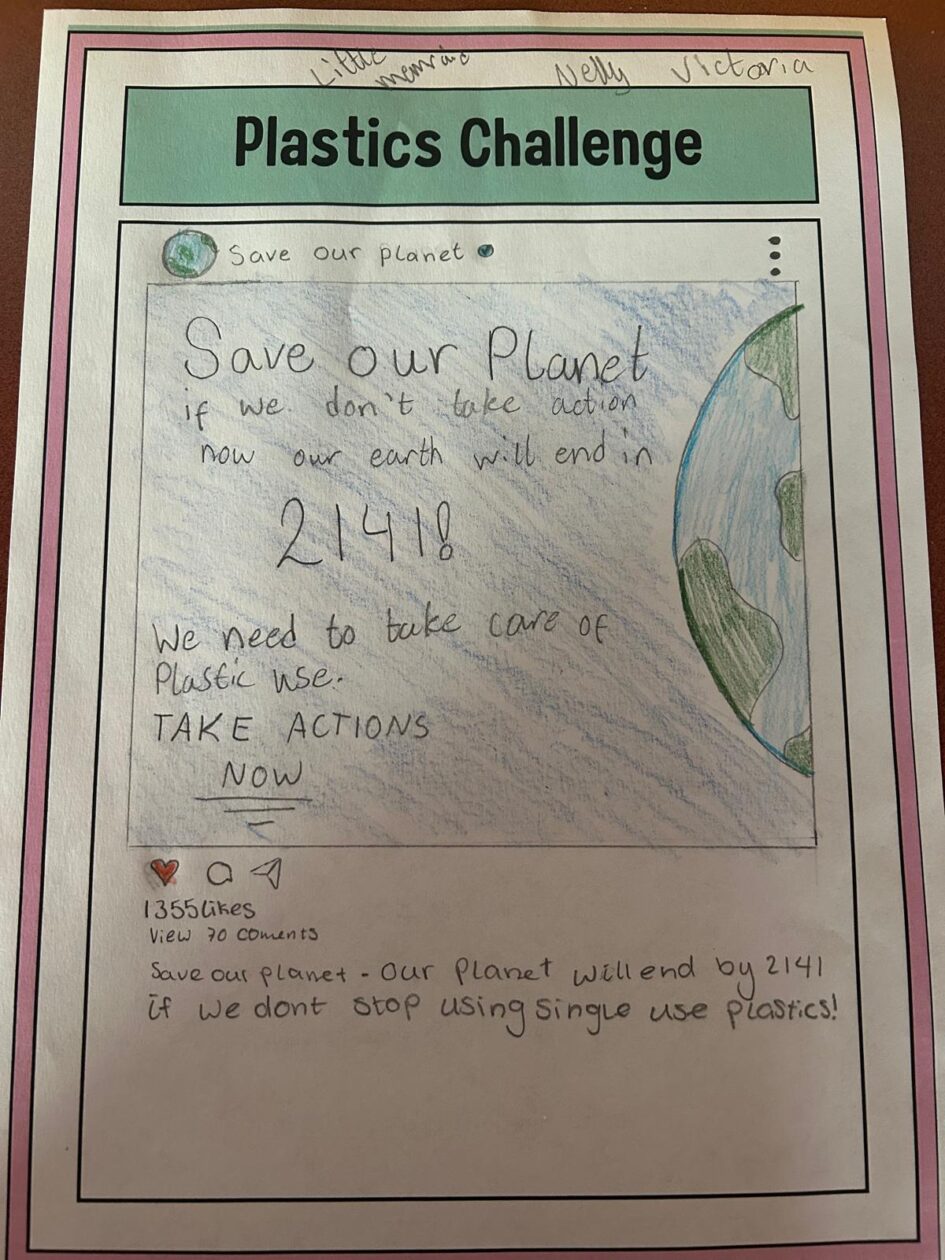 Little
memraid
Nelly Victoria
Plastics Challenge
Save our planet
Save our Planet
if we don't take action
now our earth will end in
2141!
We need to take care of
Plastic use.
TAKE ACTIONS
NOW
1355 likes
View 70 coments
Save our planet - our planet will end by 2141
if we dont stop using single use plastics!